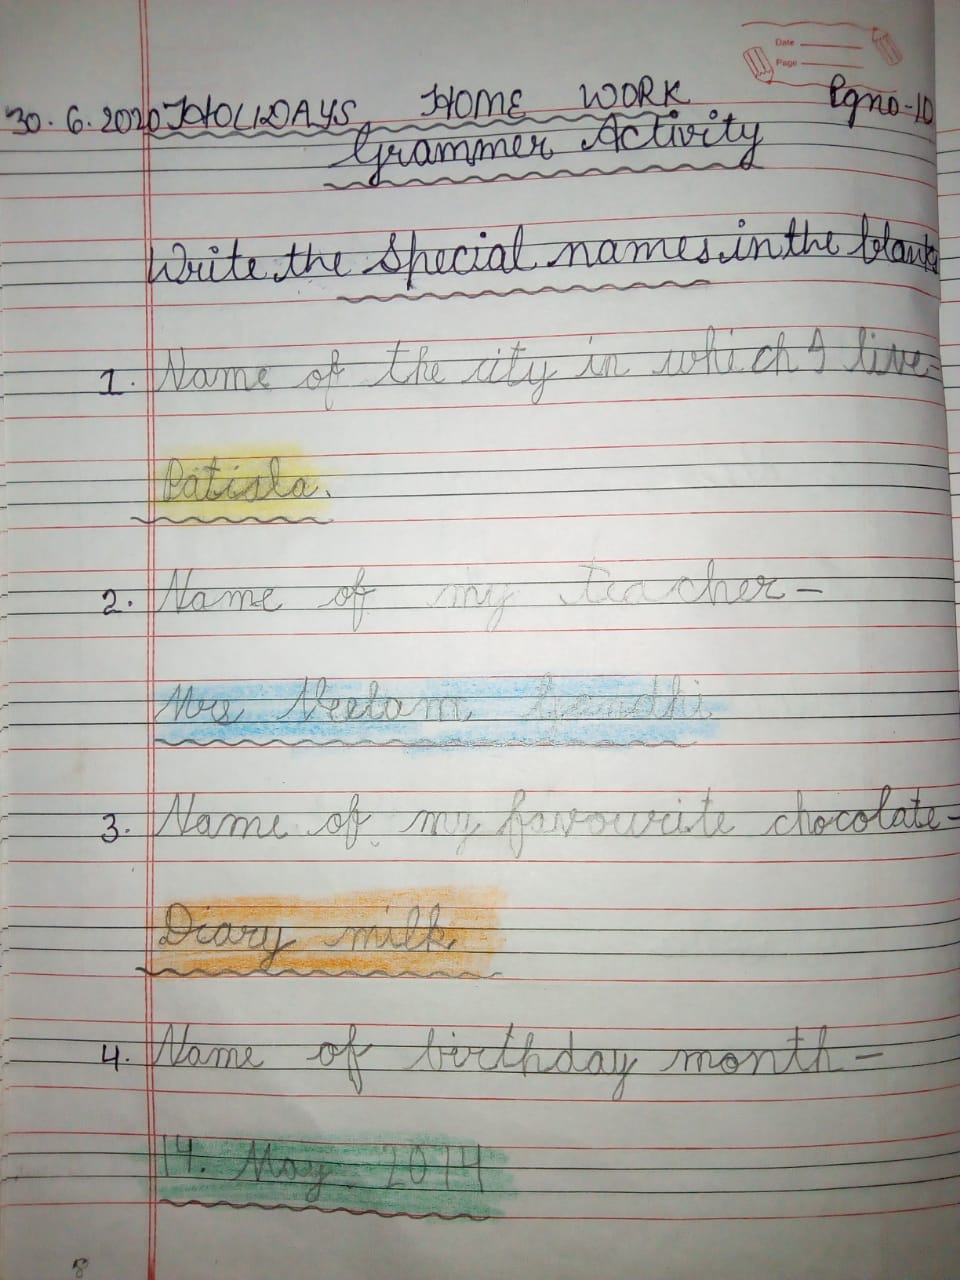 Date
Page
30.6.2020 HOLIDAYS HOME WORK Pgno-10
Grammer Activity
Write the special names in the blanks
1. Name of the city in which I live-
Patiala.
2. Name of my teacher-
Mrs Neelam Gandhi
3. Name of my favourite chocolate-
Diary milk
4. Name of birthday month-
14. May 2014
8